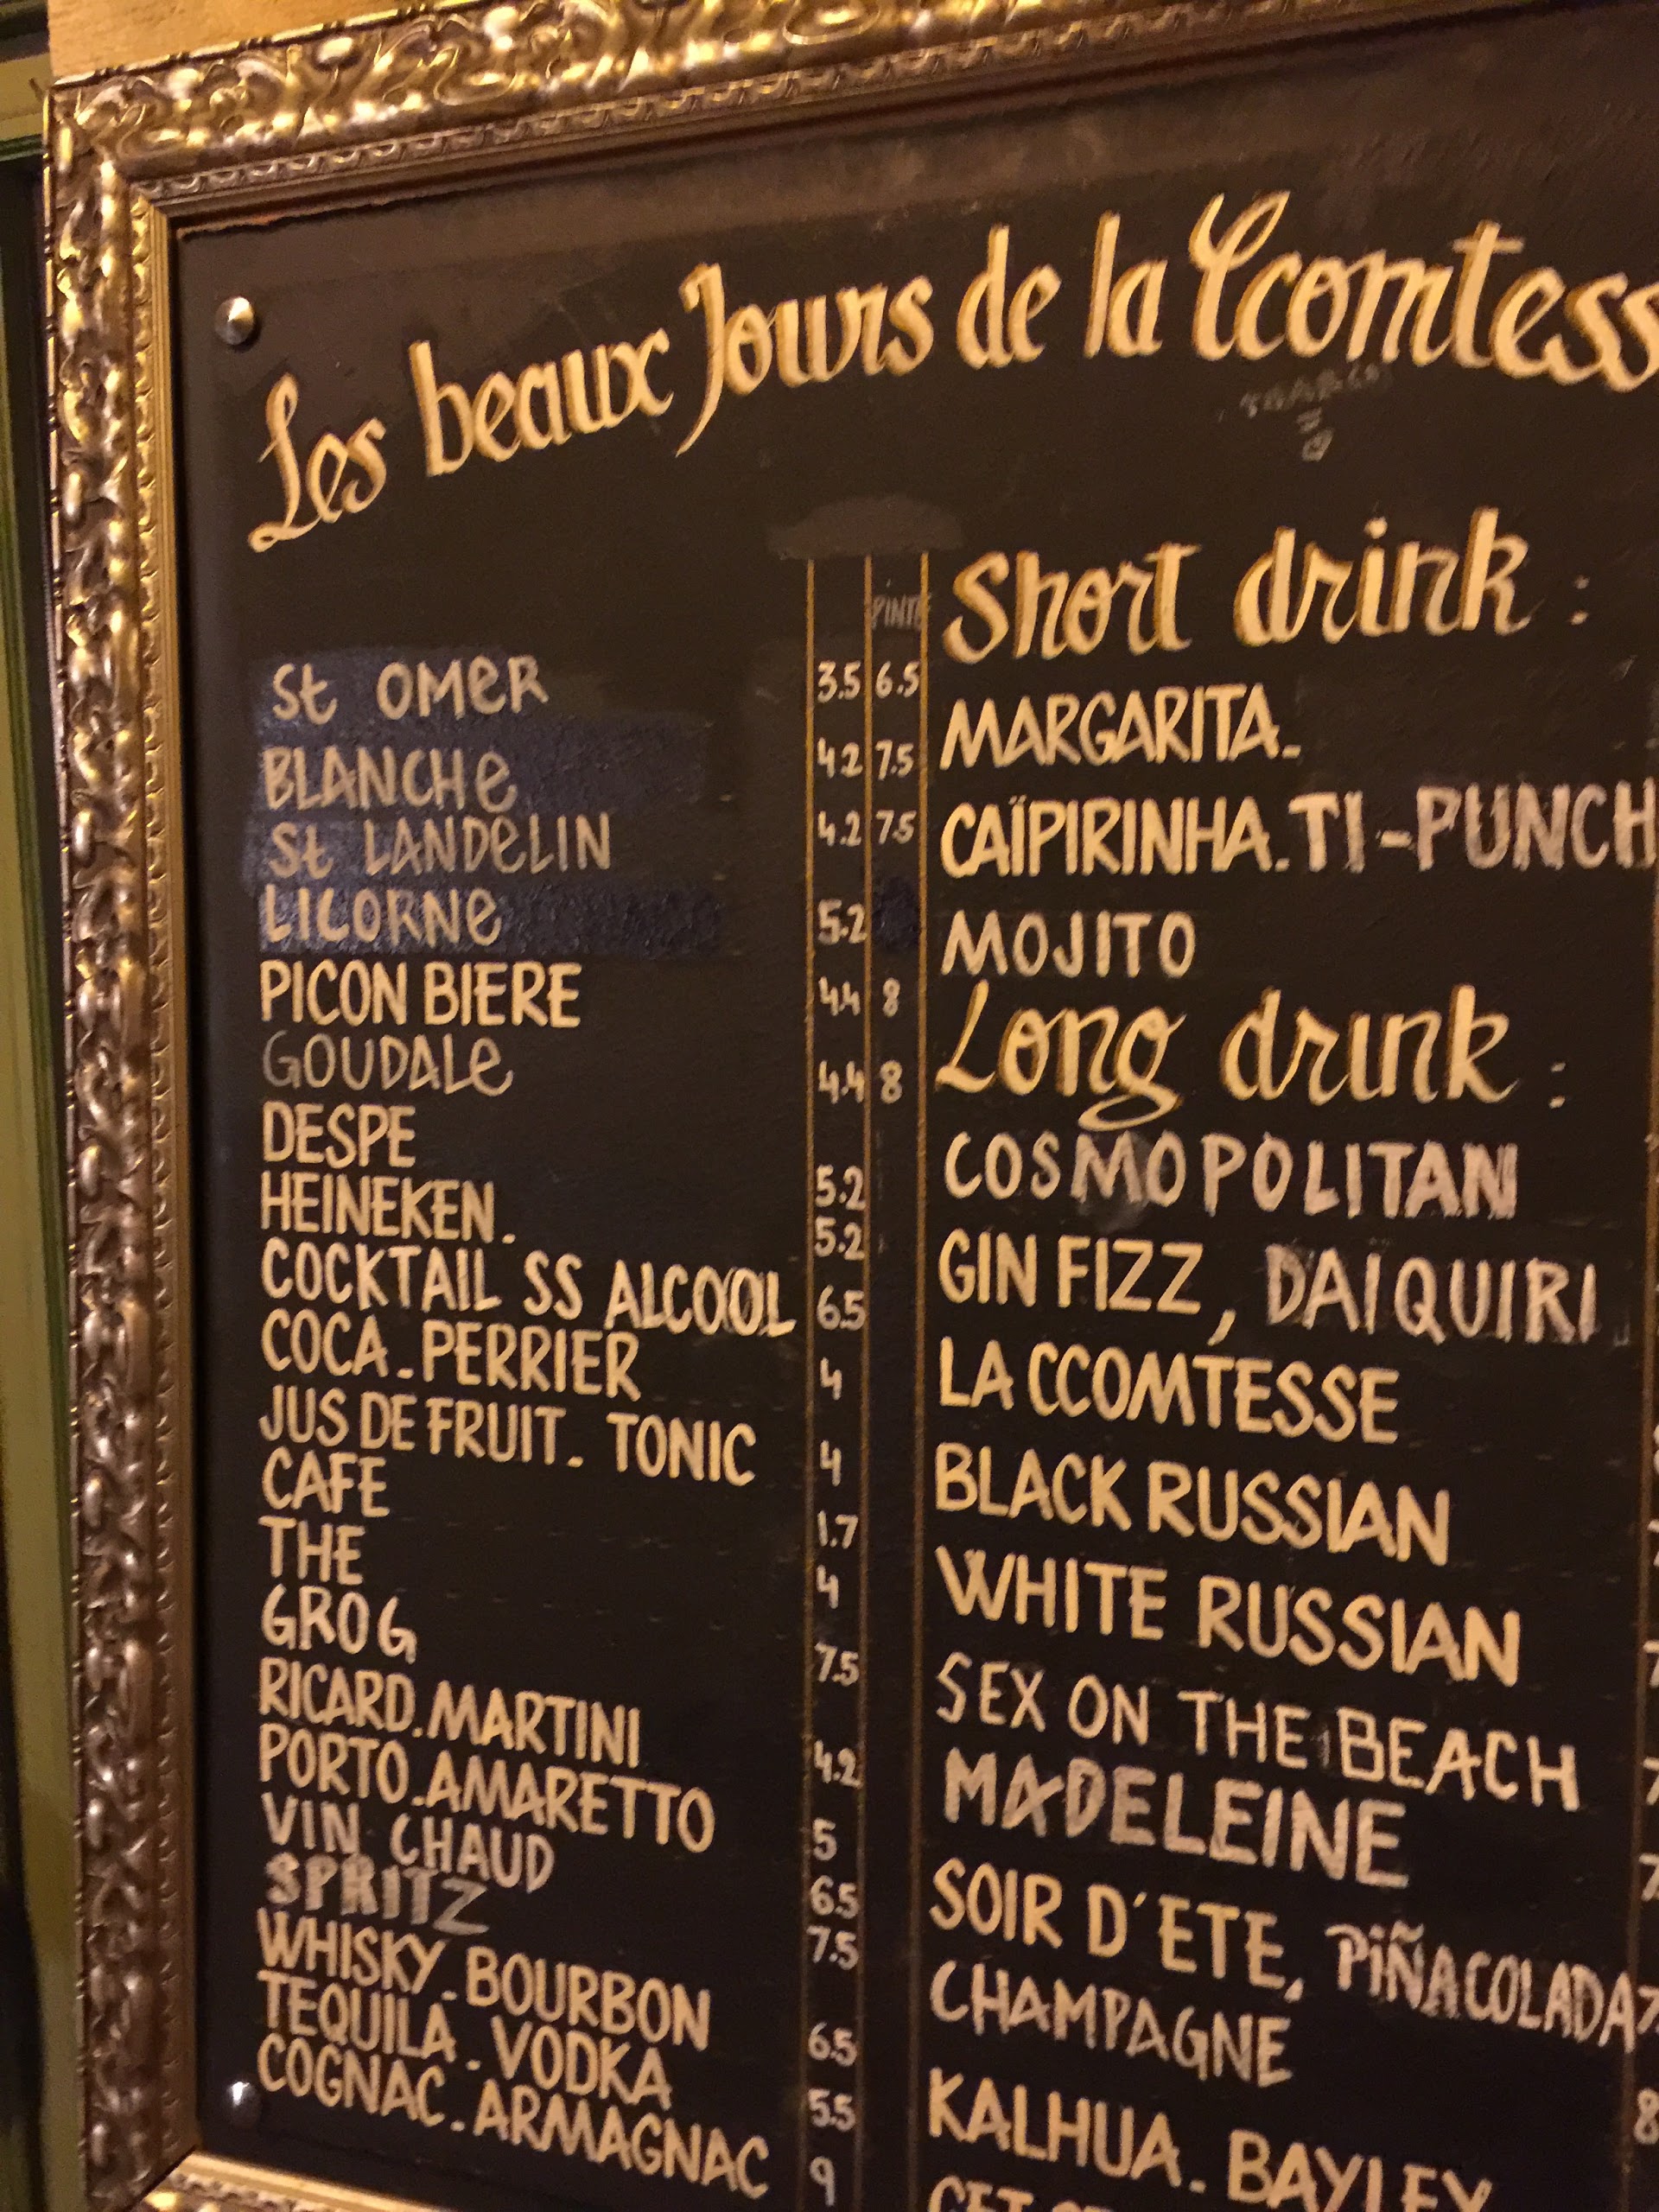 Les beaux Jours de la Ccomtess
PINTE
St OMER 3.5 6.5
BLANCHE 4.2 7.5
St LANDELIN 4.2 7.5
LICORNE 5.2
PICON BIERE 4.4 8
GOUDALE 4.4 8
DESPE 5.2
HEINEKEN. 5.2
COCKTAIL SS ALCOOL 6.5
COCA. PERRIER 4
JUS DE FRUIT. TONIC 4
CAFE 1.7
THE 4
GROG 7.5
RICARD. MARTINI 4.2
PORTO. AMARETTO 5
VIN CHAUD 6.5
SPRITZ 7.5
WHISKY. BOURBON 6.5
TEQUILA. VODKA 5.5
COGNAC. ARMAGNAC 9
Short drink :
MARGARITA.
CAÏPIRINHA. TI-PUNCH
MOJITO
Long drink :
COSMOPOLITAN
GIN FIZZ, DAIQUIRI
LA CCOMTESSE
BLACK RUSSIAN
WHITE RUSSIAN
SEX ON THE BEACH
MADELEINE
SOIR D'ETE, PIÑA COLADA
CHAMPAGNE
KALHUA. BAYLEY
GET